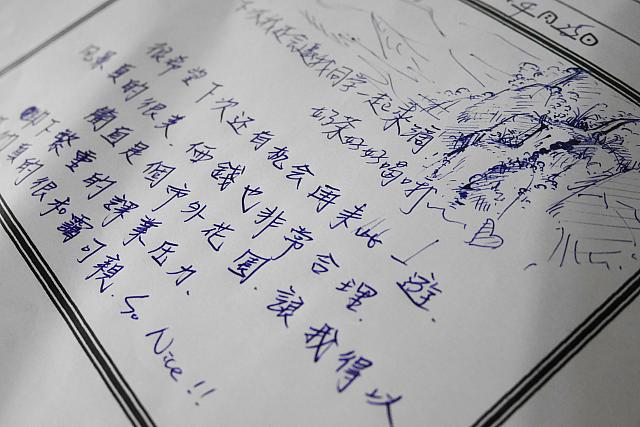 4月25日
次我还会邀我同学一起来滴
好茶好好喝啊~
很希望下次还有机会再来此一遊.
风景真的很美.価钱也非常合理.
簡直是個市外花園.讓我得以
卸下繁重的課業压力.
們真的很和靄可親.So Nice!!